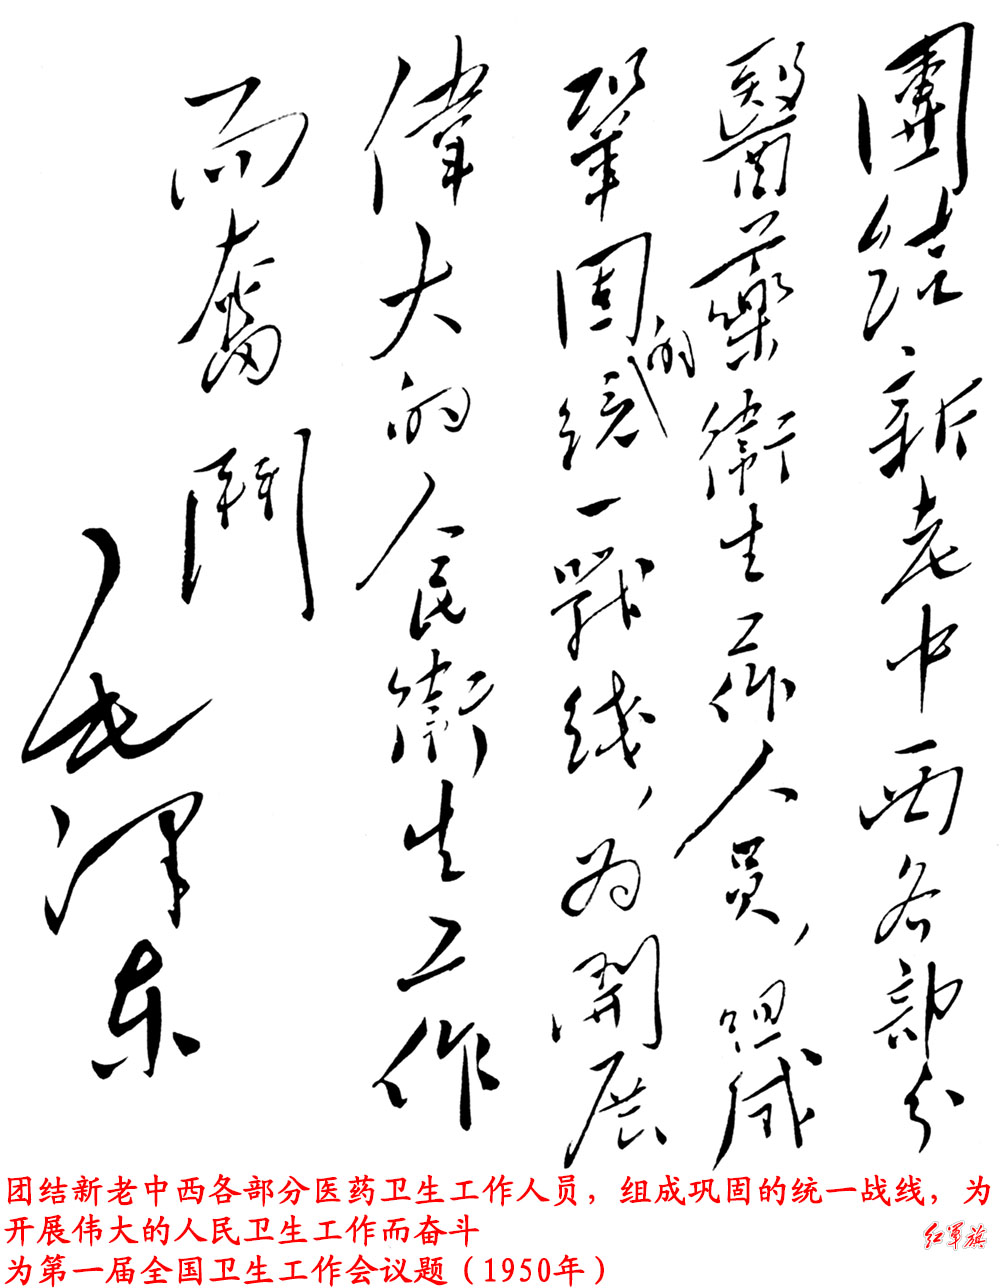 團结新老中西各部分
醫藥衛生工作人員，组成
鞏固的统一戰线，为開展
偉大的人民衛生工作
而奮鬥
毛澤东
团结新老中西各部分医药卫生工作人员，组成巩固的统一战线，为
开展伟大的人民卫生工作而奋斗
为第一届全国卫生工作会议题（1950年）
红军旗